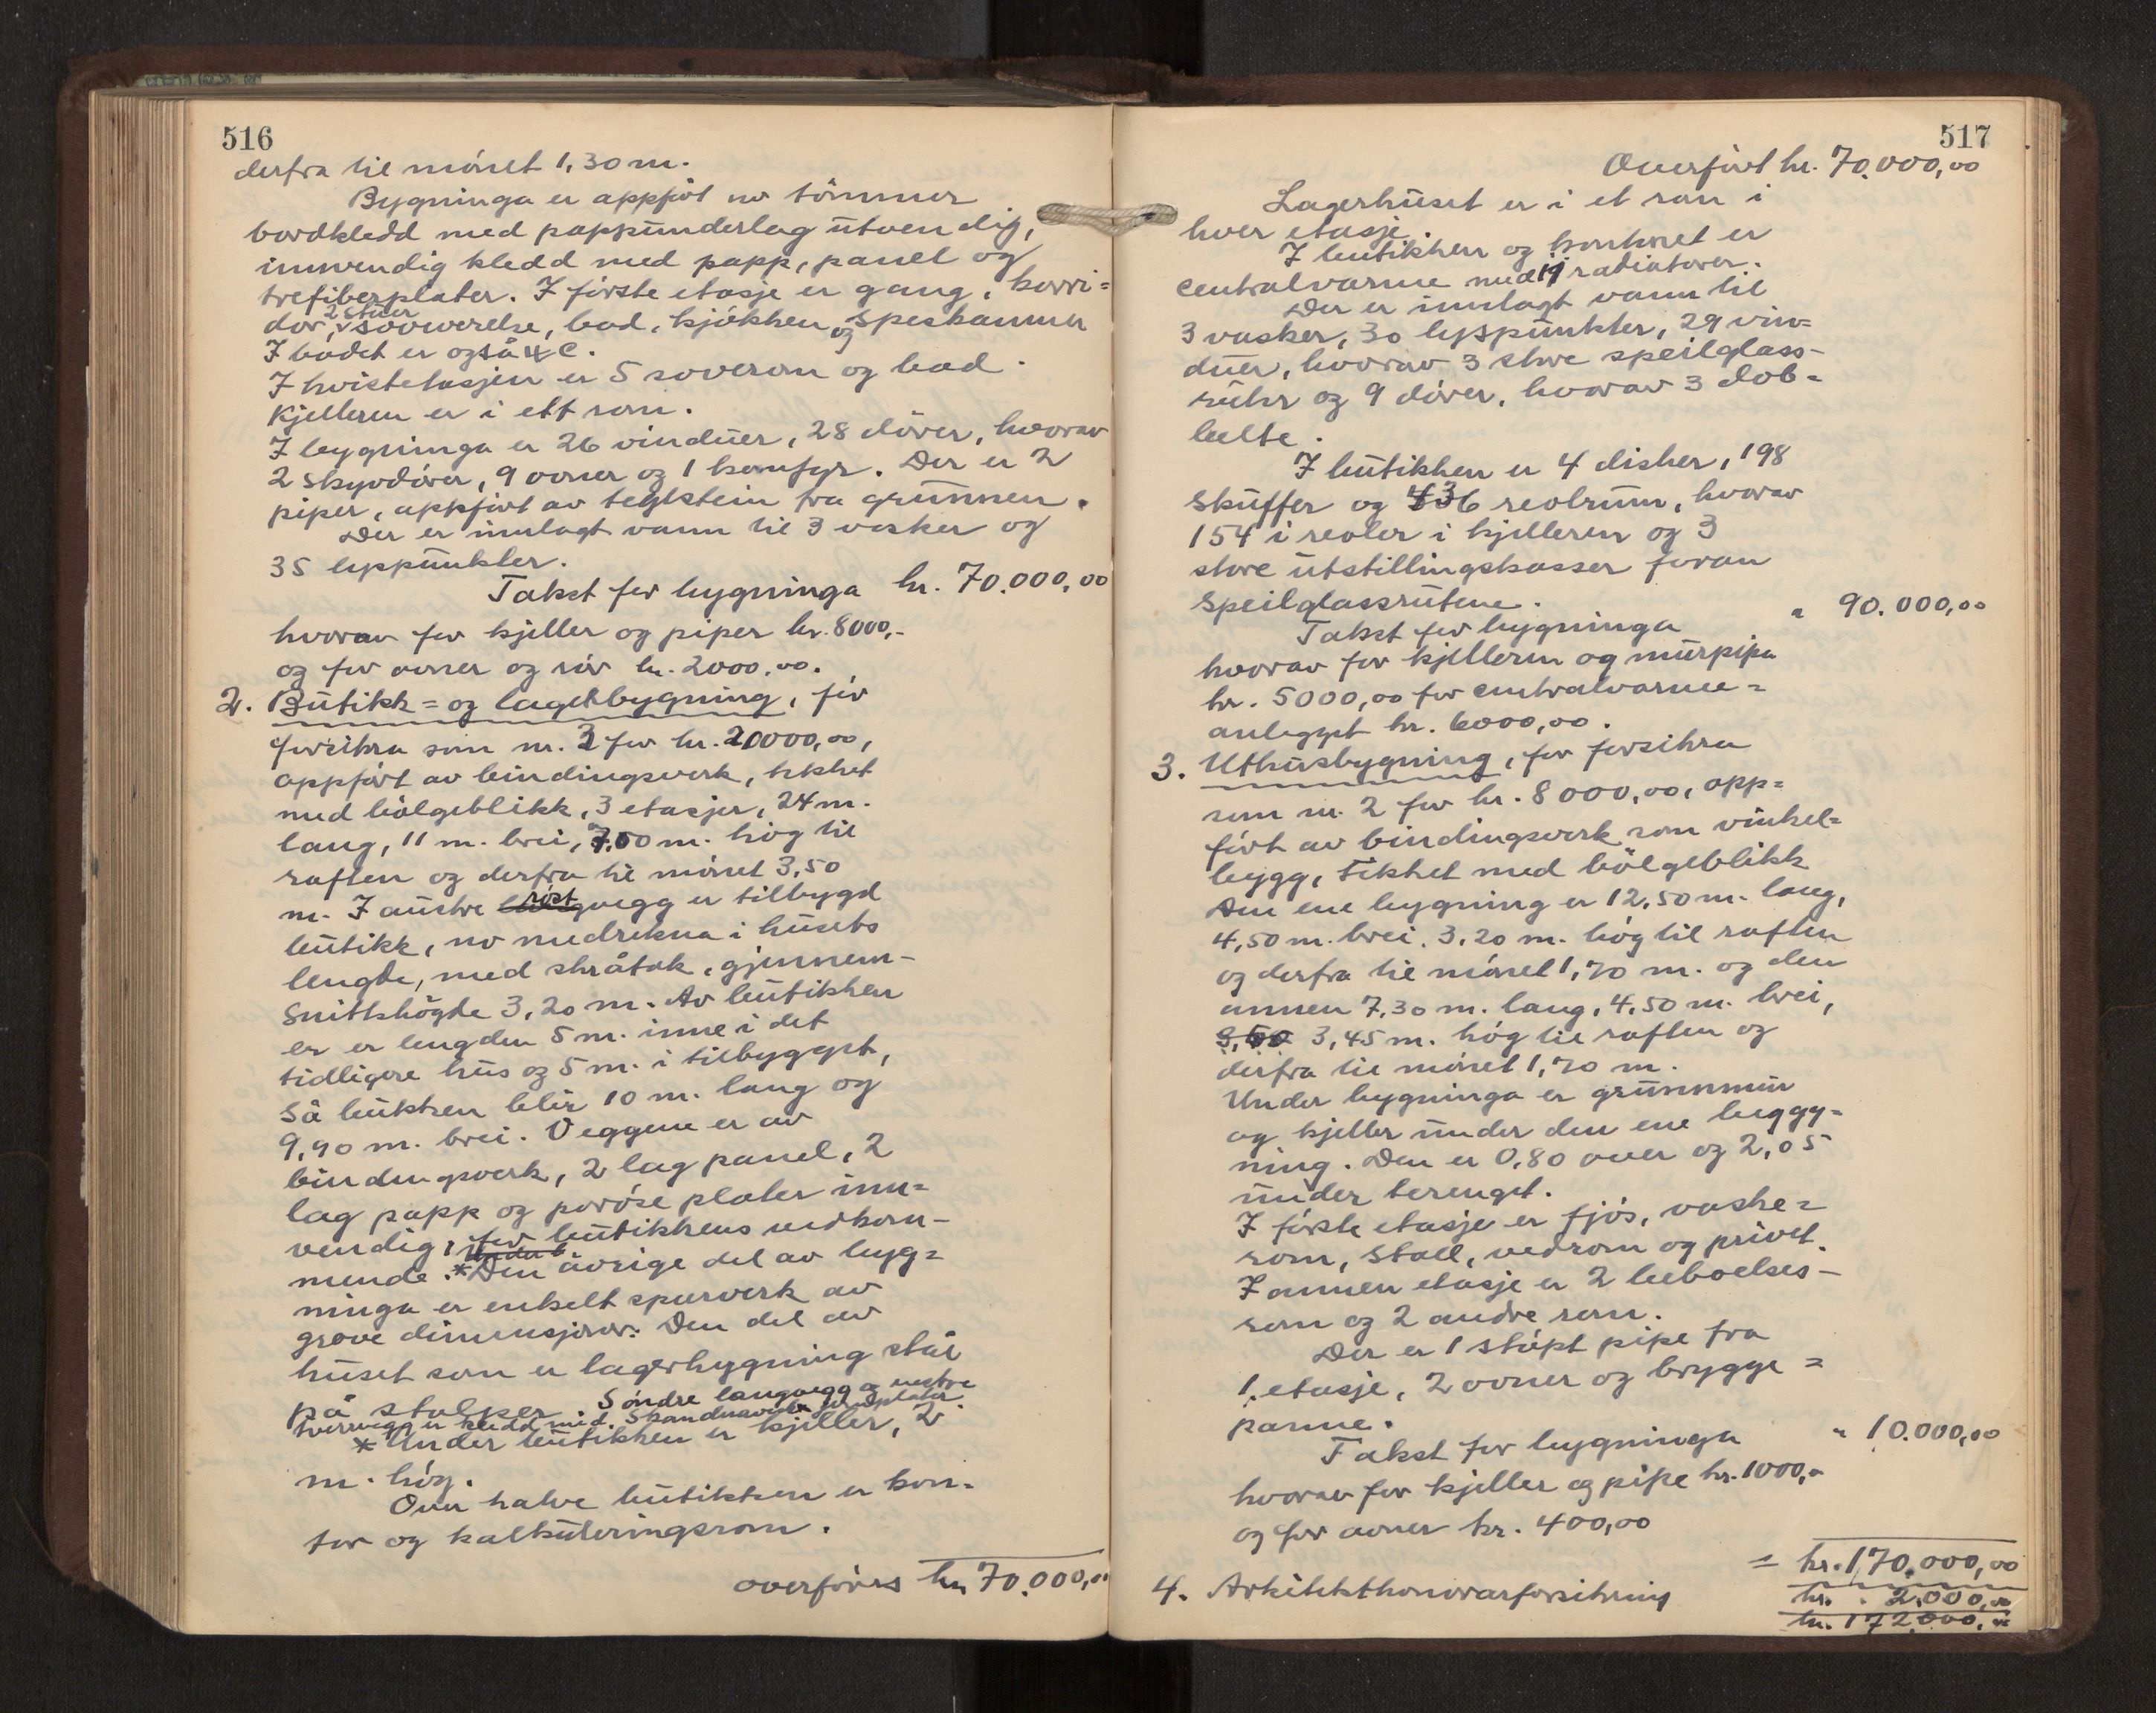 516
derfra til mønet 1,30 m.
Bygninga er oppført av tømmer
bordkledd med pappunderlag utvendig,
innvendig kledd med papp, panel og
trefiberplater. I første etasje er gang, korri=
dor, 2 stuer soveværelse, bad, kjøkken og speskammer
I badet er også W C.
I kvistetasjen er 5 soverom og bad.
Kjelleren er i ett rom.
I bygninga er 26 vinduer, 28 dører, hvorav
2 skyvdører, 9 ovner og 1 komfyr. Der er 2
piper, oppført av teglstein fra grunnen.
Der er innlagt vann til 3 vasker og
35 lyspunkter.
Takst for bygninga kr. 70.000,00
hvorav for kjeller og piper kr. 8000,-
og for ovner og rør kr. 2000,00.
2. Butikk= og lagerbygning, før
forsikra som nr. 3 for kr. 20000,00,
oppført av bindingsverk, tekket
med bølgeblikk, 3 etasjer, 24 m.
lang, 11 m. brei, 7,00 m. høg til
raften og derfra til mønet 3,50
m. I austre røstvegg er tilbygd
butikk, no medrekna i husets
lengde, med skråtak, gjennem-
snittshøgde 3,20 m. Av butikken
er er lengden 5 m. inne i det
tidligere hus og 5 m. i tilbygget,
så butikken blir 10 m. lang og
9,90 m. brei. Veggene er av
bindingsverk, 2 lag panel, 2
lag papp og porøse plater inn=
vendig, for butikkens vedkom-
mende.* Den øvrige del av byg=
ninga er enkelt sperverk av
grove dimensjoner. Den del av
huset som er lagerbygning står
på stolper. Søndre langvegg og vestre
tverrvegg er kledd med Skandinaviske plater.
* Under butikken er kjeller, 2
m. høg.
Over halve butikken er kon-
tor og kalkuleringsrom.
overføres kr. 70.000,00
517
Overført kr. 70.000,00
Lagerhuset er i et rom i
hver etasje.
I butikken og kontoret er
centralvarme med 19 radiatorer.
Der er innlagt vann til
3 vasker, 30 lyspunkter, 29 vin=
duer, hvorav 3 store speilglass-
ruter og 9 dører, hvorav 3 dob=
belte.
I butikken er 4 disker, 198
skuffer og 436 reolrum, hvorav
154 i reoler i kjelleren og 3
store utstillingskasser foran
speilglassrutene.
Takst for bygninga " 90.000,00
hvorav for kjelleren og murpipa
kr. 5000,00 for centralvarme=
anlegget kr. 6000,00.
3. Uthusbygning, før forsikra
som nr. 2 for kr. 8000,00, opp=
ført av bindingsverk som vinkel=
bygg, tekket med bølgeblikk
Den ene bygning er 12,50 m. lang,
4,50 m. brei, 3,20 m. høg til raften
og derfra til mønet 1,70 m. og den
annen 7,30 m. lang, 4,50 m. brei,
3,45 m. høg til raften og
derfra til mønet 1,70 m.
Under bygninga er grunnmur
og kjeller under den ene byggy=
ning. Den er 0,80 over og 2,05
under terenget.
I første etasje er fjøs, vaske=
rom, stall, vedrom og privet.
I annen etasje er 2 beboelses-
rom og 2 andre rom.
Der er 1 støpt pipe fra
1. etasje, 2 ovner og brygge=
panne.
Takst for bygninga " 10.000,00
hvorav for kjeller og pipe kr. 1000,-
og for ovner kr. 400,00
= kr. 170.000,00
4. Arkitekthonorarforsikring kr. 2.000,00
kr. 172.000,00